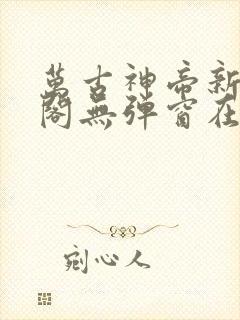 萬古神帝新
閣無彈窗在
剜心人